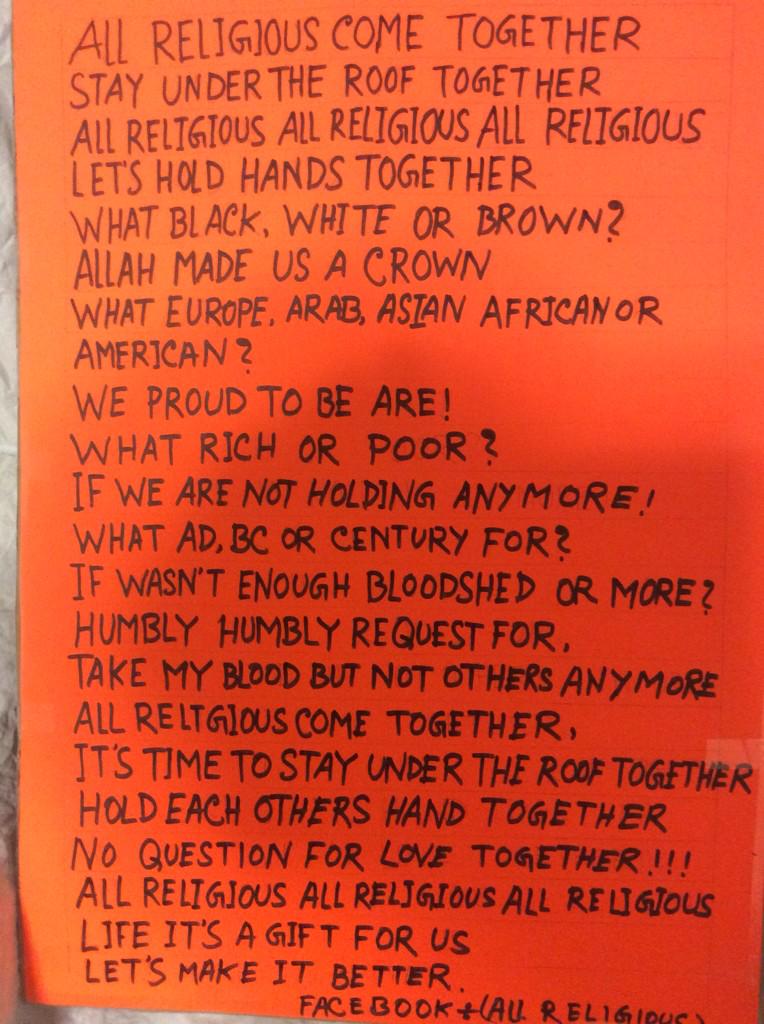 ALL RELIGIOUS COME TOGETHER
STAY UNDER THE ROOF TOGETHER
ALL RELIGIOUS ALL RELIGIOUS ALL RELIGIOUS
LET'S HOLD HANDS TOGETHER
WHAT BLACK, WHITE OR BROWN?
ALLAH MADE US A CROWN
WHAT EUROPE, ARAB, ASIAN AFRICAN OR
AMERICAN?
WE PROUD TO BE ARE!
WHAT RICH OR POOR?
IF WE ARE NOT HOLDING ANYMORE!
WHAT AD, BC OR CENTURY FOR?
IF WASN'T ENOUGH BLOODSHED OR MORE?
HUMBLY HUMBLY REQUEST FOR,
TAKE MY BLOOD BUT NOT OTHERS ANYMORE
ALL RELIGIOUS COME TOGETHER,
IT'S TIME TO STAY UNDER THE ROOF TOGETHER
HOLD EACH OTHERS HAND TOGETHER
NO QUESTION FOR LOVE TOGETHER!!!
ALL RELIGIOUS ALL RELIGIOUS ALL RELIGIOUS
LIFE IT'S A GIFT FOR US
LET'S MAKE IT BETTER.
FACEBOOK + (ALL RELIGIOUS)